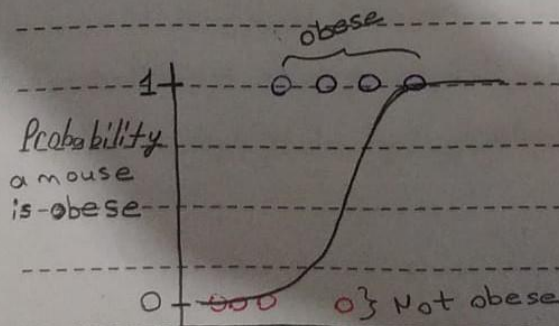 obese
1
Probability
a mouse
is-obese
0
} Not obese